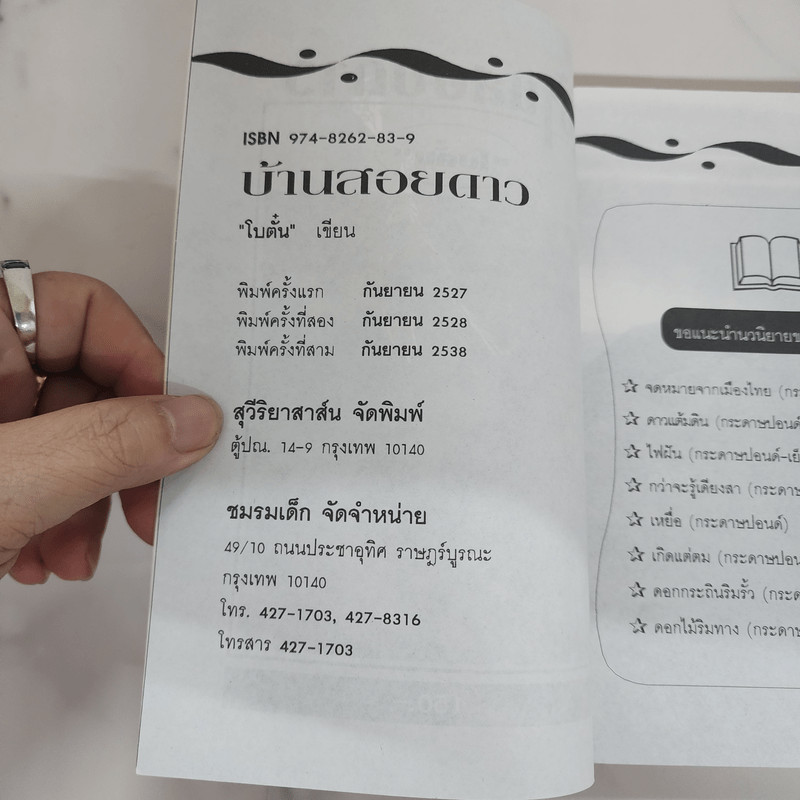 ISBN 974-8262-83-9
บ้านสอยดาว
"โบตั๋น" เขียน
พิมพ์ครั้งแรก กันยายน 2527
พิมพ์ครั้งที่สอง กันยายน 2528
พิมพ์ครั้งที่สาม กันยายน 2538
สุวีริยาสาส์น จัดพิมพ์
ตู้ปณ. 14-9 กรุงเทพ 10140
ชมรมเด็ก จัดจำหน่าย
49/10 ถนนประชาอุทิศ ราษฎร์บูรณะ
กรุงเทพ 10140
โทร. 427-1703, 427-8316
โทรสาร 427-1703
ขอแนะนำนวนิยายข
☆ จดหมายจากเมืองไทย (กร
☆ ดาวแต้มดิน (กระดาษปอนด์
☆ ไฟผัน (กระดาษปอนด์-เย็
☆ กว่าจะรู้เดียงสา (กระดาษ
☆ เหยื่อ (กระดาษปอนด์)
☆ เกิดแต่ตม (กระดาษปอน
☆ ดอกกระถินริมรั้ว (กระด
☆ ดอกไม้ริมทาง (กระดาษ